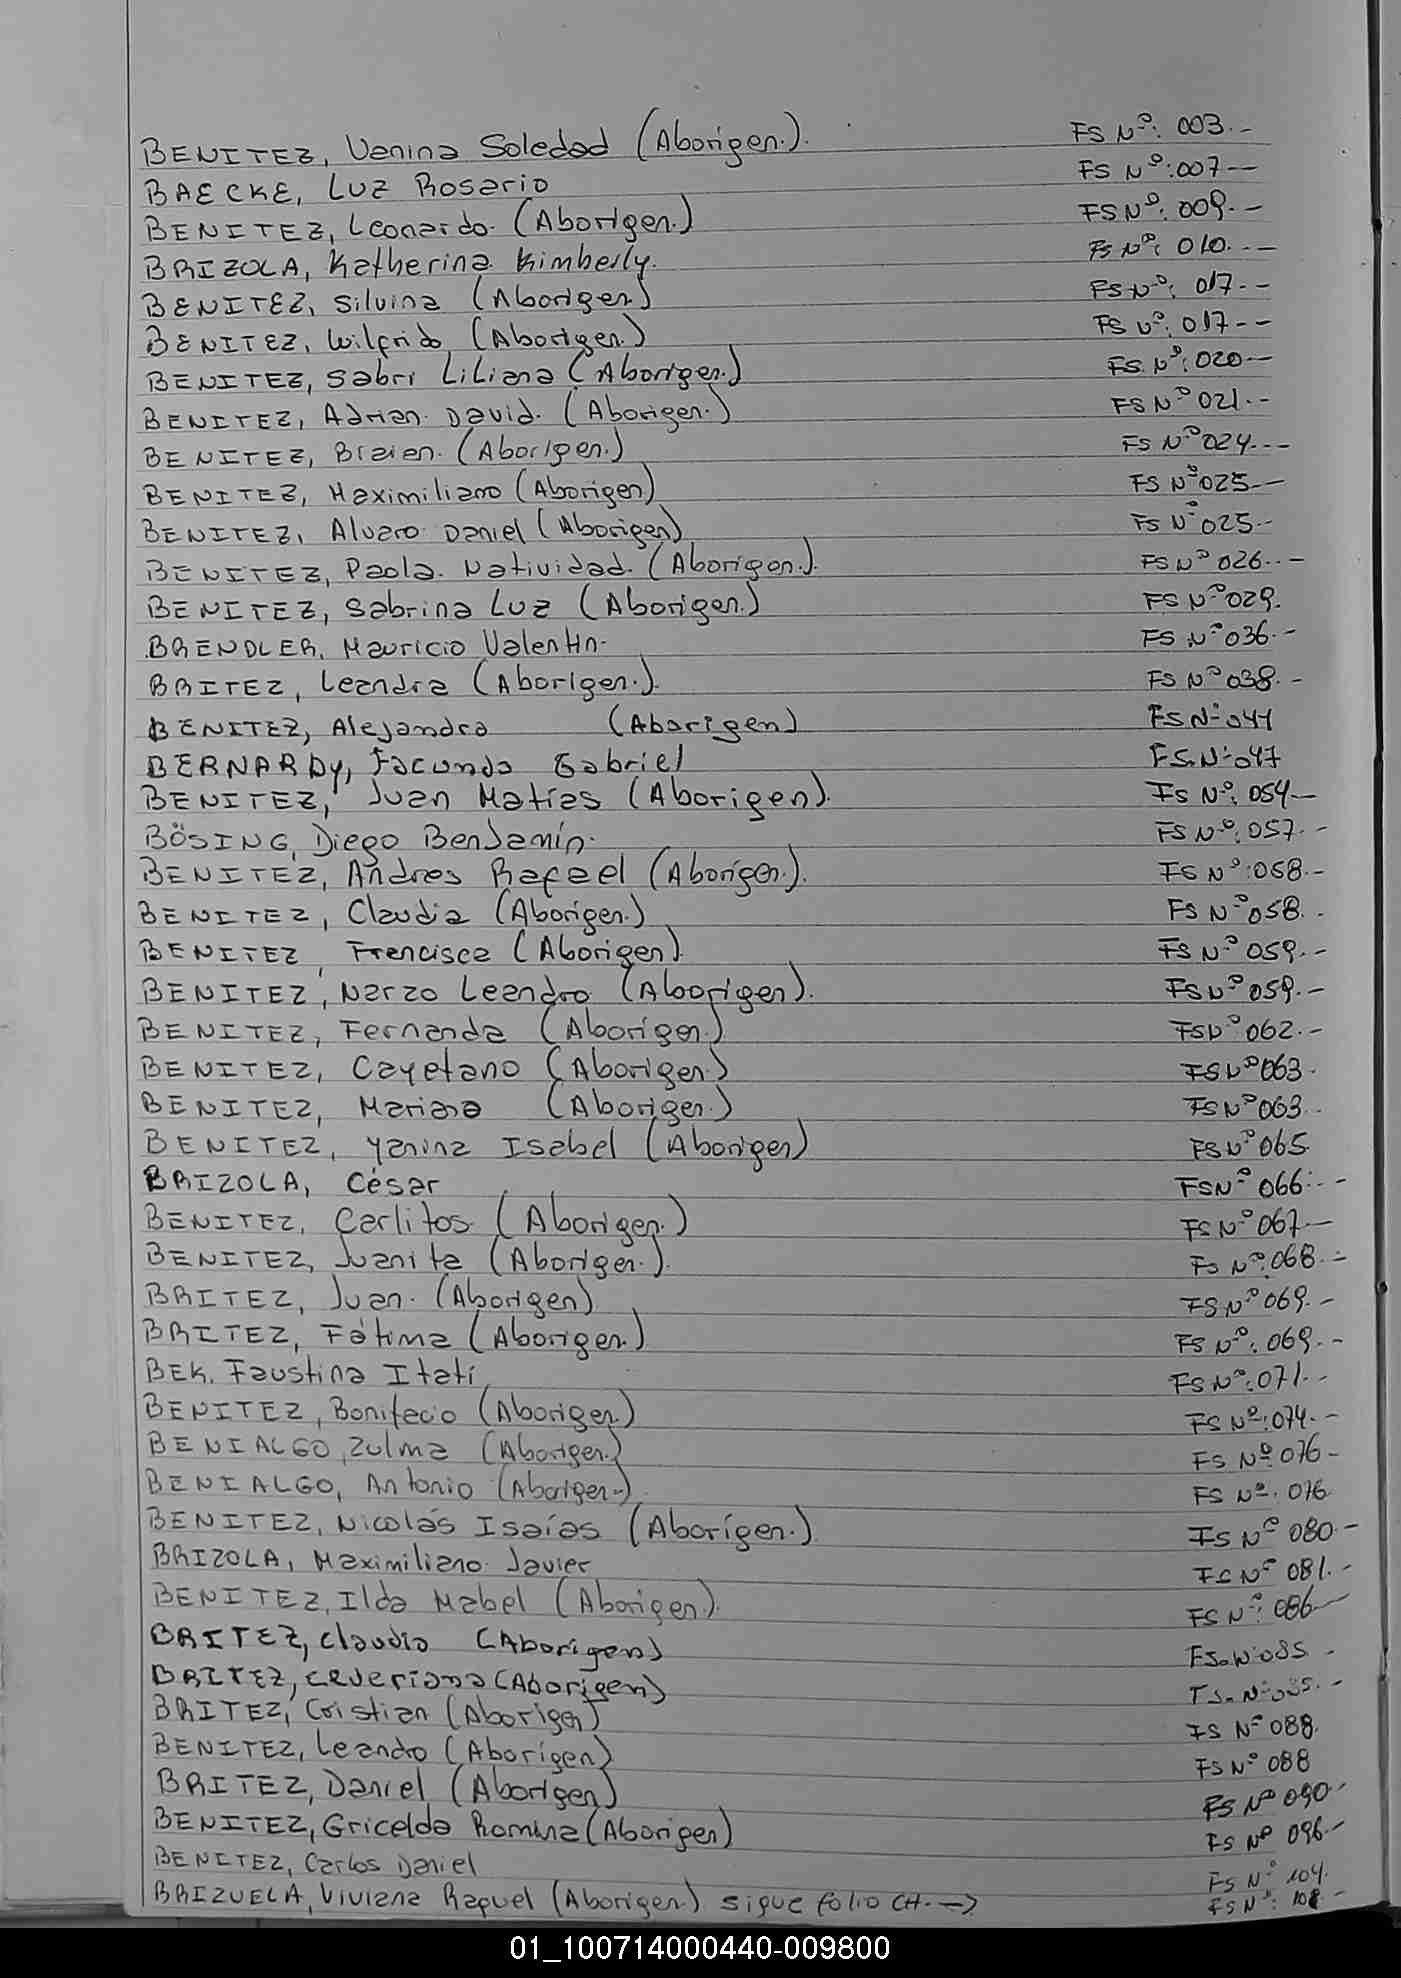 BENITEZ, Venina Soledad (Aborigen.). FS Nº: 003.-
BAECKE, Luz Rosario FS Nº: 007--
BENITEZ, Leonardo. (Aborigen.) FS Nº: 009.-
BRIZOLA, Katherina Kimberly. FS Nº: 010.--
BENITEZ, Silvina (Aborigen) FS Nº: 017--
BENITEZ, Wilfrido (Aborigen.) FS Nº: 017--
BENITEZ, Sabri Liliana (Aborigen.) FS. Nº: 020--
BENITEZ, Adrian David. (Aborigen.) FS Nº 021.-
BENITEZ, Braien. (Aborigen.) FS Nº 024.--
BENITEZ, Maximiliano (Aborigen) FS Nº 025--
BENITEZ, Alvaro Daniel (Aborigen) FS Nº 025--
BENITEZ, Paola. Natividad. (Aborigen.). FS Nº 026.--
BENITEZ, Sabrina Luz (Aborigen.) FS Nº 029.
BRENDLER, Mauricio Valentin. FS Nº 036.-
BRITEZ, Leandra (Aborigen.). FS Nº 038.-
BENITEZ, Alejandra (Aborigen) FS Nº 044
BERNARDY, Facundo Gabriel FS. Nº 047
BENITEZ, Juan Matías (Aborigen). FS Nº: 054--
BÖSING, Diego Benjamín. FS Nº: 057.-
BENITEZ, Andres Rafael (Aborigen.). FS Nº: 058.-
BENITEZ, Claudia (Aborigen.) FS Nº 058..
BENITEZ, Francisca (Aborigen). FS Nº 059.-
BENITEZ, Narzo Leandro (Aborigen). FS Nº 059.-
BENITEZ, Fernanda (Aborigen.) FS Nº 062.-
BENITEZ, Cayetano (Aborigen.) FS Nº 063.
BENITEZ, Mariana (Aborigen.) FS Nº 063.
BENITEZ, Yanina Isabel (Aborigen) FS Nº 065
BRIZOLA, César FS Nº 066.--
BENITEZ, Carlitos. (Aborigen.) FS Nº 067--
BENITEZ, Juanita (Aborigen.). FS Nº: 068.-
BRITEZ, Juan. (Aborigen) FS Nº 069.-
BRITEZ, Fátima (Aborigen.) FS Nº: 069.-
BEK, Faustina Itatí FS Nº: 071.-
BENITEZ, Bonifacio (Aborigen) FS Nº: 074.-
BENIALGO, Zulma (Aborigen.) FS Nº 076-
BENIALGO, Antonio (Aborigen.). FS Nº. 076
BENITEZ, Nicolás Isaías (Aborígen.) FS Nº 080.-
BRIZOLA, Maximiliano Javier FS Nº 081.-
BENITEZ, Ilda Mabel (Aborigen.). FS Nº: 086--
BRITEZ, Claudio (Aborigen) FS. Nº 085 -
BRITEZ, Ceveriana (Aborigen) FS. Nº 085.-
BRITEZ, Cristian (Aborigen) FS Nº 088.
BENITEZ, Leandro (Aborígen) FS Nº 088
BRITEZ, Daniel (Aborigen) FS Nº 090.-
BENITEZ, Gricelda Romina (Aborigen) FS Nº 096.-
BENITEZ, Carlos Daniel FS Nº 104.
BRIZUELA, Viviana Raquel (Aborigen.) sigue folio CH.--> FS Nº: 108 -
01_100714000440-009800